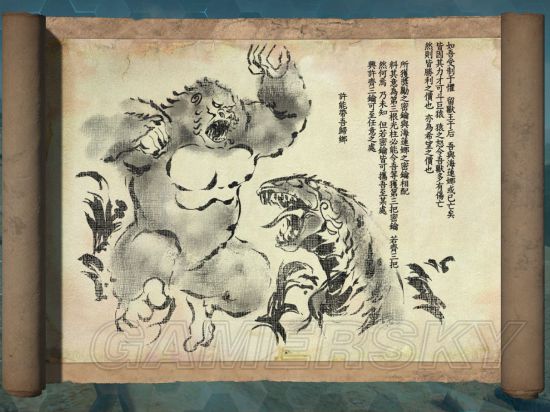 如吾受制于懼 留獸王于后 吾與海蓮娜或已亡矣
皆因其力才可斗巨猿 猿之怒令吾獸多有傷亡
然則皆勝利之價也 亦為希望之價也
所獲獎勵之密鑰與海蓮娜之密鑰相配
料其意為第三根光柱必能令吾等獲第三把密鑰 若齊三把
然何焉 乃未知 但若密鑰皆可攜吾至某處
興許齊三鑰可至任意之處
許能帶吾歸鄉
GAMERSKY